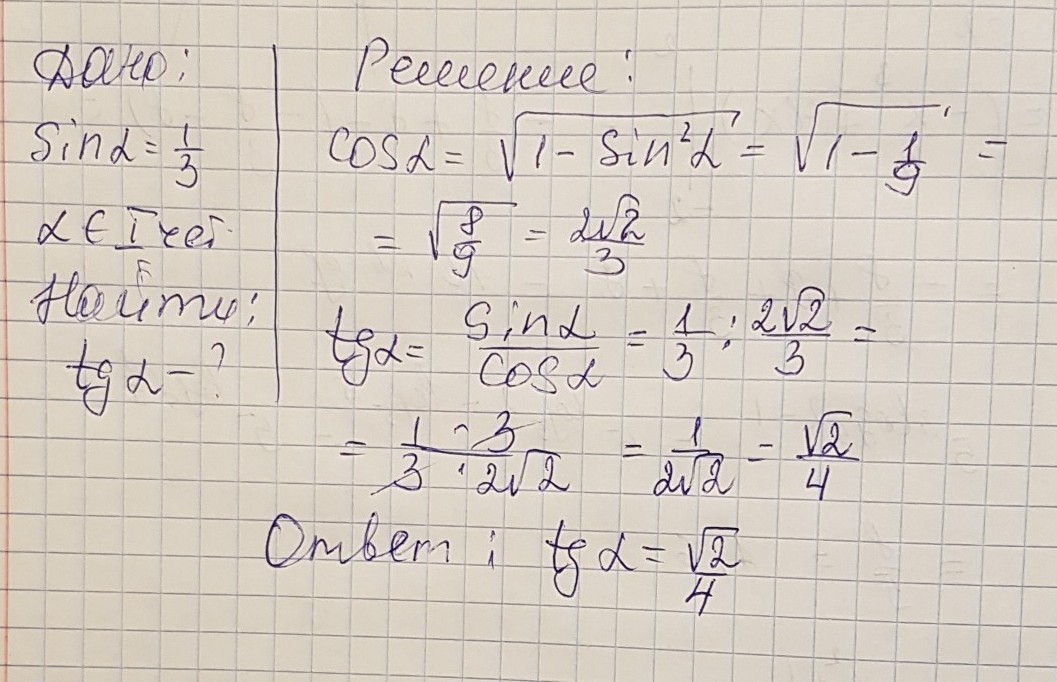 Дано:
Sinα = 1/3
α ∈ I чет.
Найти:
tg α - ?
Решение:
cosα = √(1 - Sin²α) = √(1 - 1/9) =
= √(8/9) = 2√2/3
tgα = Sinα/Cosα = 1/3 : 2√2/3 =
= 1 · 3/3 · 2√2 = 1/2√2 = √2/4
Ответ: tg α = √2/4